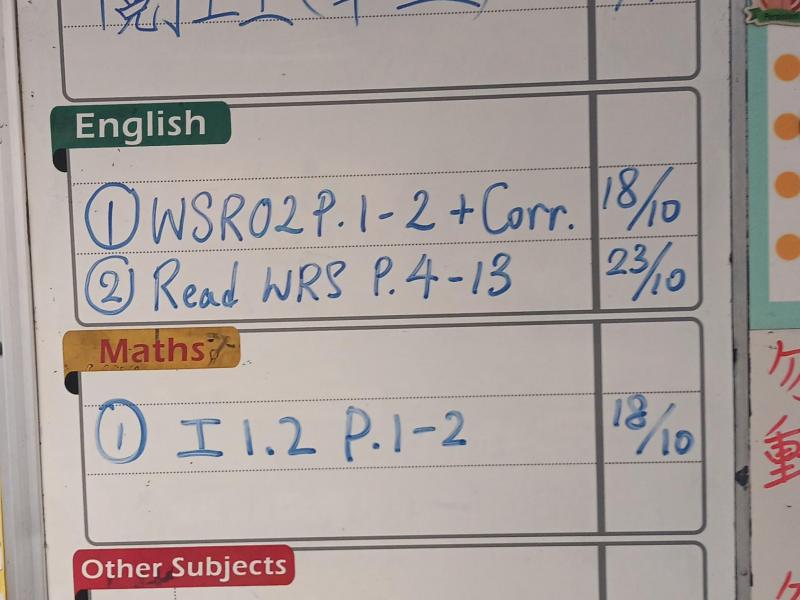 English
① WSR02 P.1-2 + Corr. 18/10
② Read WRS P.4-13 23/10
Maths
① I 1.2 P.1-2 18/10
Other Subjects
勿
動